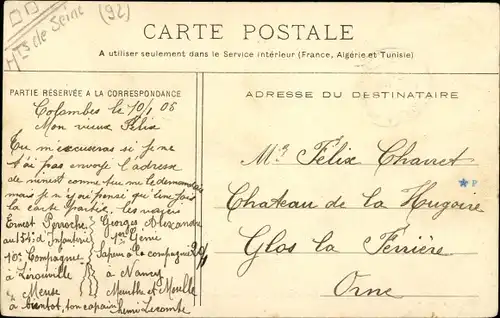 (92)
Hts de Seine
CARTE POSTALE
A utiliser seulement dans le Service intérieur (France, Algérie et Tunisie)
PARTIE RÉSERVÉE A LA CORRESPONDANCE
ADRESSE DU DESTINATAIRE
Colombes le 10/1 06
Mon vieux Félix
Tu m'excuseras si je ne
t'ai pas envoyé l'adresse
de minist comme tu me le demandais
mais je n'y ai pensé qu'une fois
la carte partie. les voici
Ernest Perroche
au 154: d'Infanterie
10e Compagnie
à Lérouville
Meuse
Georges Alexandre
1er Génie
Sapeur à la compagnie 20/1
à Nancy
Meurthe et Moselle
à bientôt, ton copain Henri Lecomte
Mr Félix Chauvet
Chateau de la Hugoire
* F
Glos la Ferrière
Orne